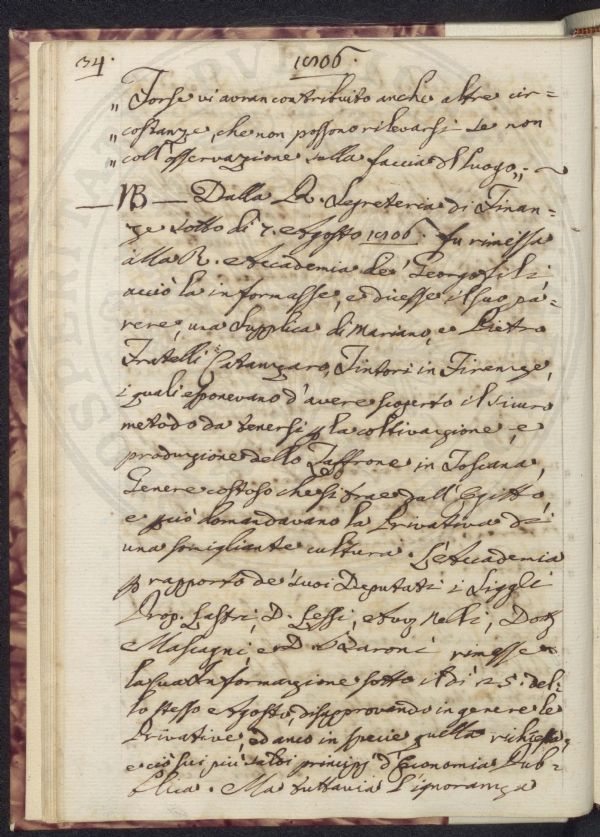 34.
1806.
„ Forse vi avran contribuito anche altre cir=
„ costanze, che non possono rilevarsi se non
„ coll'osservazione sulla faccia del luogo„. ~
— NB — Dalla R. Segreteria di Finan=
ze sotto dì 7. Agosto 1806. fu rimessa
alla R. Accademia de' Georgofili,
acciò la informasse, e dicesse il suo pa=
rere, una Supplica di Mariano, e Pietro
Fratelli Catanzaro, Tintori in Firenze,
i quali esponevano d'avere scoperto il sicuro
metodo da tenersi p la coltivazione, e
produzione dello Zaffrone in Toscana,
Genere costoso che si trae dall'Egitto,
e p ciò domandavano la Privativa di
una somigliante cultura. L'Accademia
p rapporto de' suoi Deputati i Sigg.li
Prop. Lastri, D. Lessi, Avv. Nelli, Dott.
Mascagni, e D. Baroni rimesse
la sua Informazione sotto il dì 25. del=
lo stesso Agosto, disapprovando in genere le
Privative, ed anco in specie quella richiesta,
e ciò sui più saldi principj d'Economia Pub=
blica. Ma tuttavia l'ignoranza